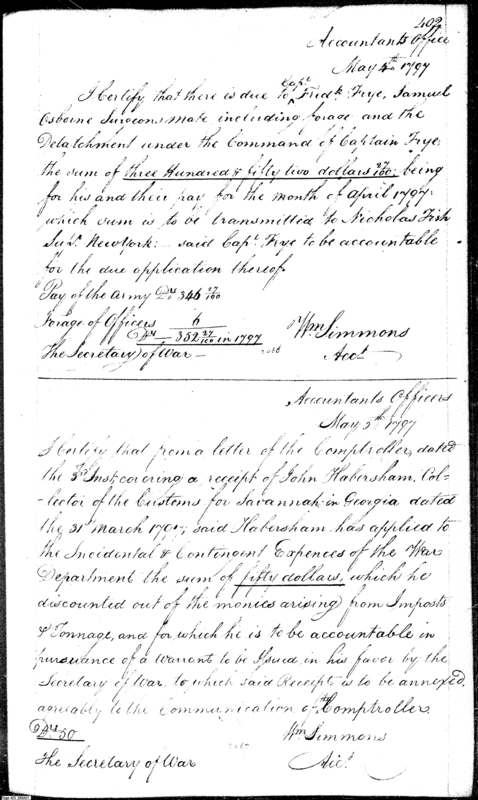 402
Accountants Office
May 4th 1797
I Certify that there is due to Capt. Fredk. Frye, Samuel
Osborne Surgeons mate including forage and the
Detatchment under the Command of Captain Frye,
the sum of three Hundred & fifty two dollars 27/100; being
for his and their pay for the month of April 1797.
which sum is to be transmitted to Nicholas Fish
Supr. New York: said Capt. Frye to be accountable
for the due application thereof.
Pay of the Army Drs 346 27/100
Forage of Officers 6
Drs 352 27/100 in 1797
Wm Simmons
The Secretary of War
Acct.
Accountants Officers
May 5th 1797
I Certify, that from a letter of the Comptroller, dated
the 3rd Inst, covering a receipt of John Habersham, Col-
-lector of the Customs for Savannah in Georgia dated
the 31st March 1797; said Habersham has applied to
the Incidental & Contingent Expences of the War
Department the sum of fifty dollars, which he
discounted out of the monies arising from Imposts
& Tonnage, and for which he is to be accountable in
pursuance of a Warrant to be Issued in his favor by the
Secretary of War, to which said Receipt is to be annexed,
agreably to the Communication of the Comptroller.
Drs 50
Wm Simmons
The Secretary of War
Acct.